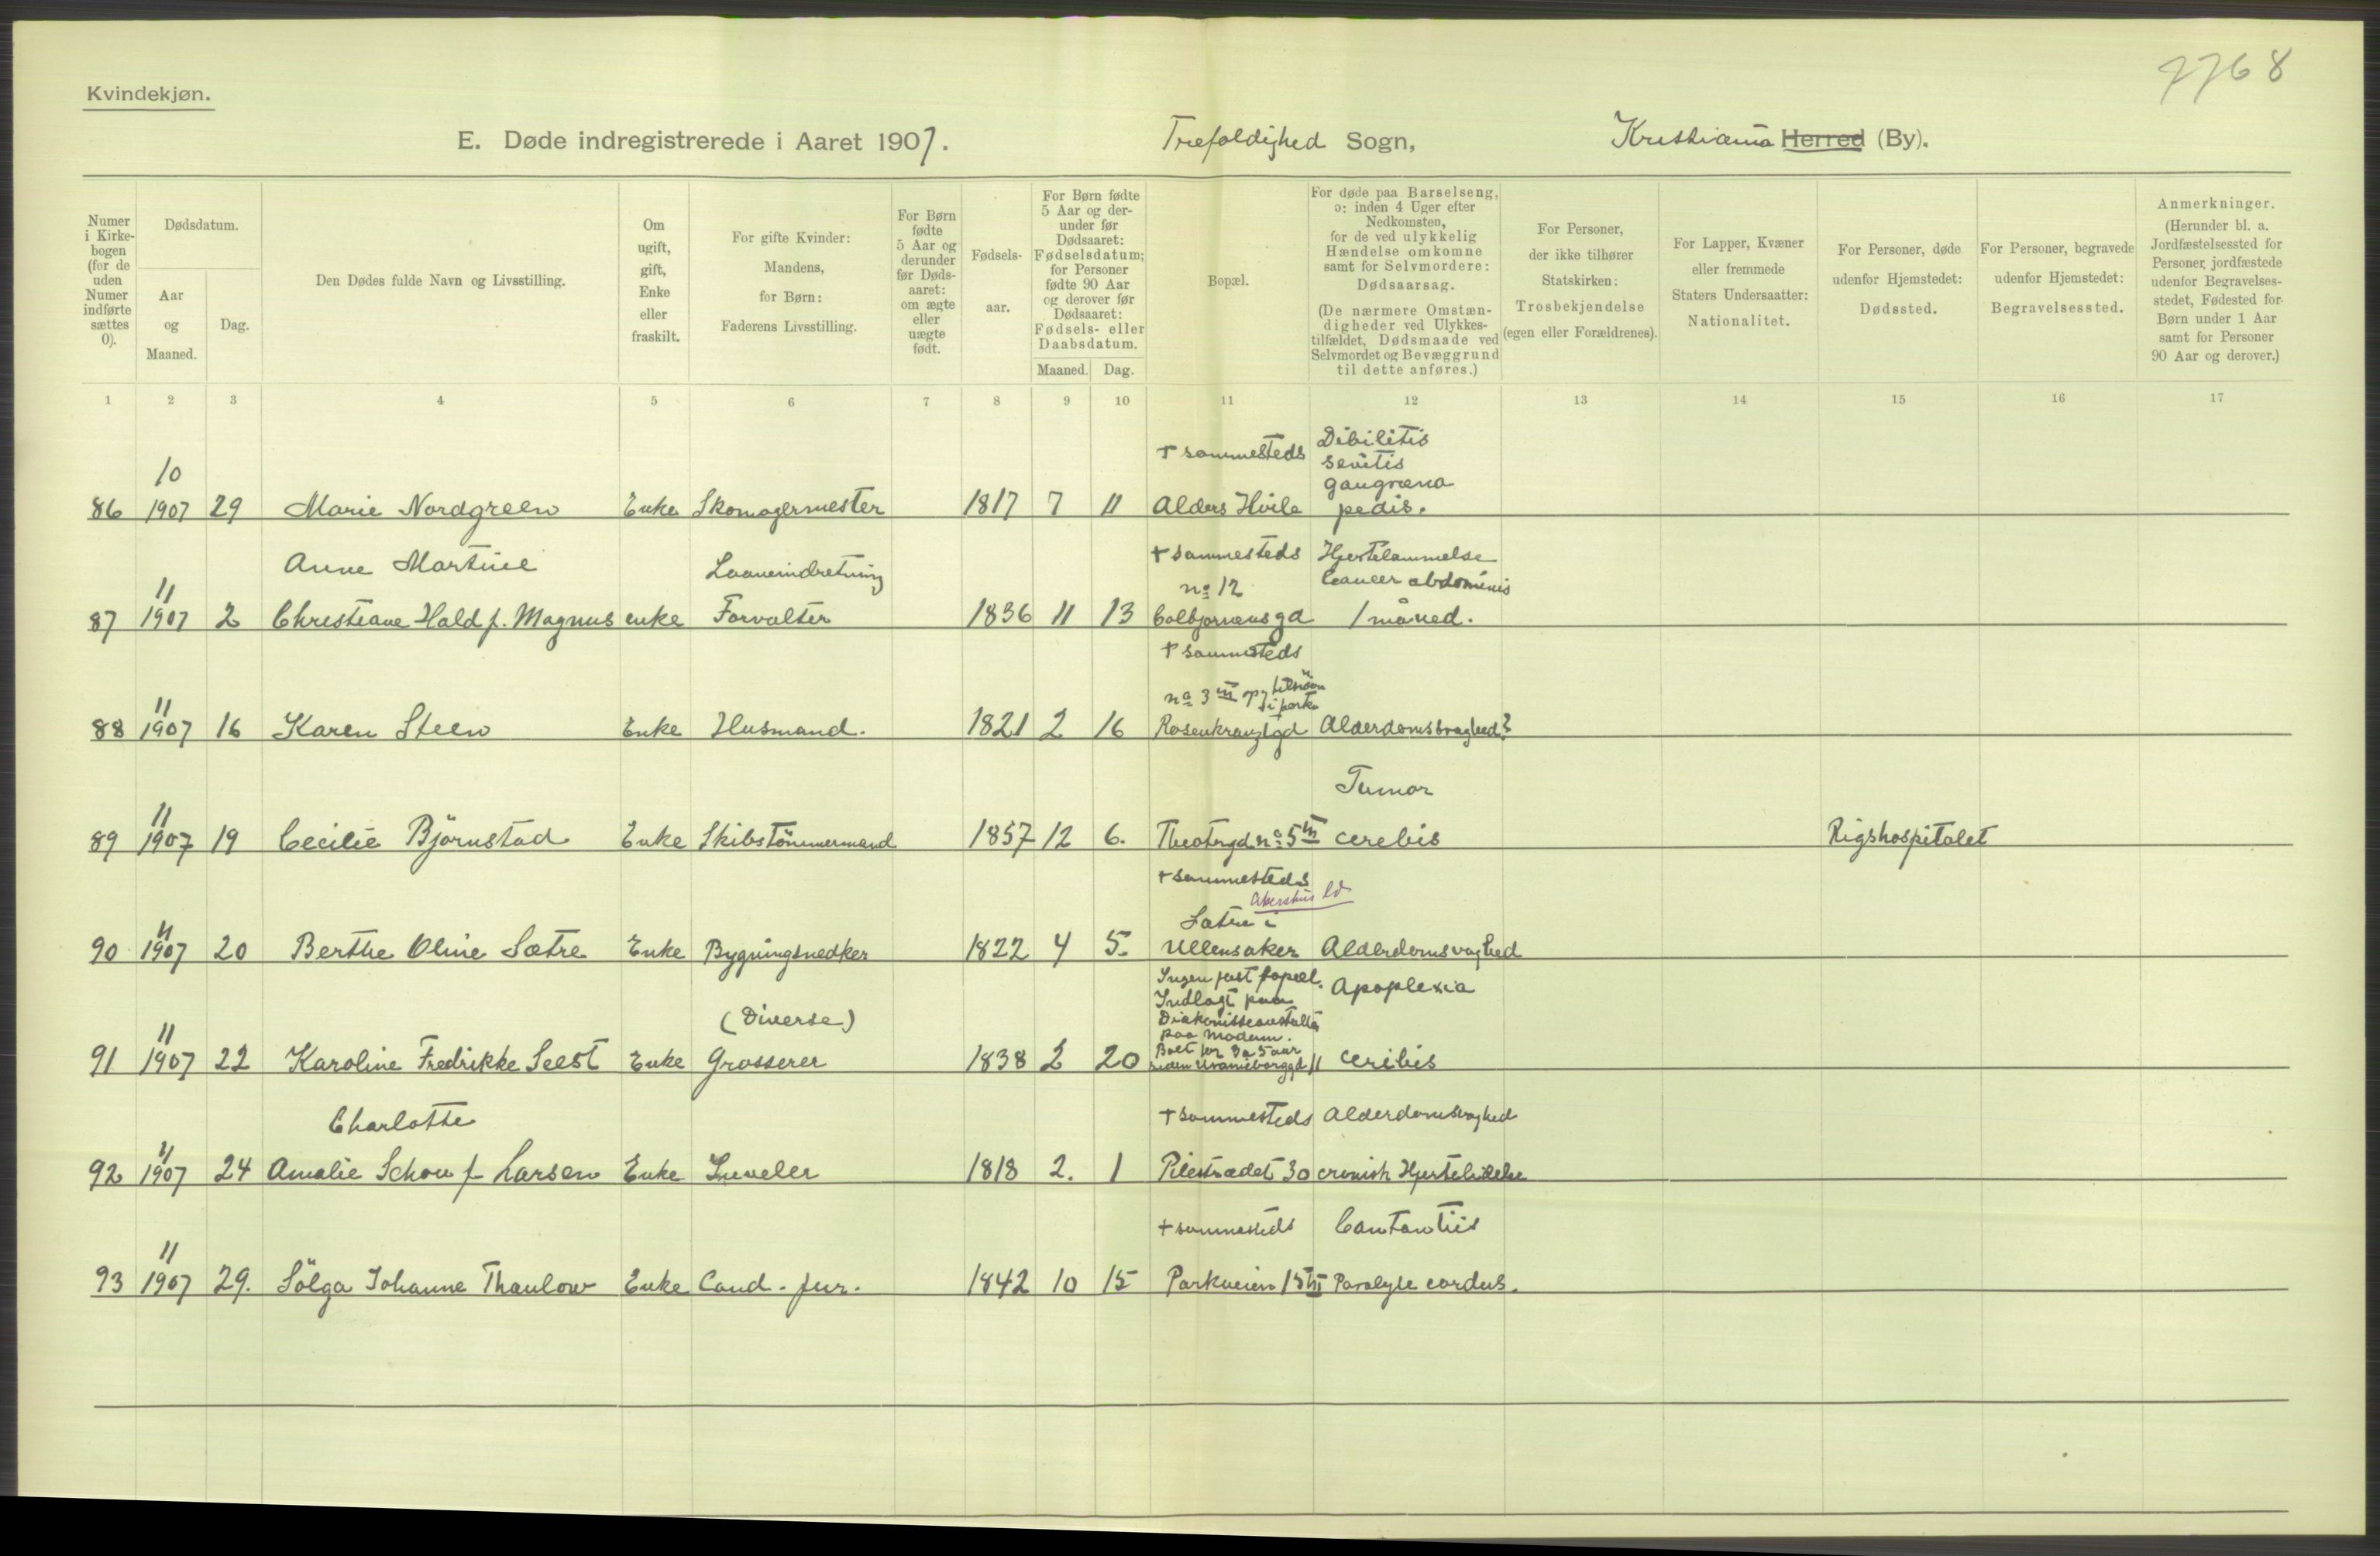 7768
Kvindekjøn.
E. Døde indregistrerede i Aaret 1907. Trefoldighed Sogn, Kristiania Herred (By).
Numer i Kirkebogen (for de uden Numer indførte sættes 0).
Dødsdatum.
Aar og Maaned.
Dag.
Den Dødes fulde Navn og Livsstilling.
Om ugift, gift, Enke eller fraskilt.
For gifte Kvinder: Mandens, for Børn: Faderens Livsstilling.
For Børn fødte 5 Aar og derunder før Dødsaaret: om ægte eller uægte født.
Fødselsaar.
For Børn fødte 5 Aar og derunder før Dødsaaret: Fødselsdatum; for Personer fødte 90 Aar og derover før Dødsaaret: Fødsels- eller Daabsdatum.
Maaned. Dag.
Bopæl.
For døde paa Barselseng, ɔ: inden 4 Uger efter Nedkomsten, for de ved ulykkelig Hændelse omkomne samt for Selvmordere: Dødsaarsag.
(De nærmere Omstændigheder ved Ulykkestilfældet, Dødsmaade ved Selvmordet og Bevæggrund til dette anføres.)
For Personer, der ikke tilhører Statskirken: Trosbekjendelse (egen eller Forældrenes).
For Lapper, Kvæner eller fremmede Staters Undersaatter: Nationalitet.
For Personer, døde udenfor Hjemstedet: Dødssted.
For Personer, begravede udenfor Hjemstedet: Begravelsessted.
Anmerkninger.
(Herunder bl. a. Jordfæstelsessted for Personer, jordfæstede udenfor Begravelsesstedet, Fødested for Børn under 1 Aar samt for Personer 90 Aar og derover.)
1 2 3 4 5 6 7 8 9 10 11 12 13 14 15 16 17
+ sammesteds Dibilitis
senitis
10 gangræna
86 1907 29 Marie Nordgreen Enke Skomagermester 1817 7 11 Alders Hvile pedis.
Anne Martine Laaneindretning + sammesteds Hjertelammelse
11 no 12 Cancer abdominis
87 1907 2 Christiane Hald f. Magnus enke Forvalter 1836 11 13 Colbjørnensgd 1 måned.
+ sammesteds
11 no 3 III
88 1907 16 Karen Steen Enke Husmand. 1821 2 16 Rosenkranzgd Alderdomsvaghed?
11 Tumor
89 1907 19 Cecilie Björnstad Enke Skibstömmermand 1857 12 6. Theatergd. no 5 III cerebis Rigshospitalet
+ sammesteds
Akershus
11 Sætre i
90 1907 20 Berthe Oline Sætre Enke Bygningsnedker 1822 4 5. Ullensaker Alderdomsvaghed
Ingen fast bopæl. Apoplexia
Indlagt paa
(Diverse) Diakonisseanstalten
11 paa Modum.
Boet for 3 a 5 aar
91 1907 22 Karoline Fredrikke Seest Enke Grosserer 1838 2 20 siden Uranieborggd 11 ceribis
Charlotte + sammesteds Alderdomsvaghed
11
92 1907 24 Amalie Schou f. Larsen Enke Juveler 1818 2. 1 Pilestrædet 30 cronisk Hjertelidelse
11 + sammesteds
93 1907 29. Sölga Johanne Thaulow Enke Cand. jur. 1842 10 15 Parkveien 15 III Paralyse cordus.